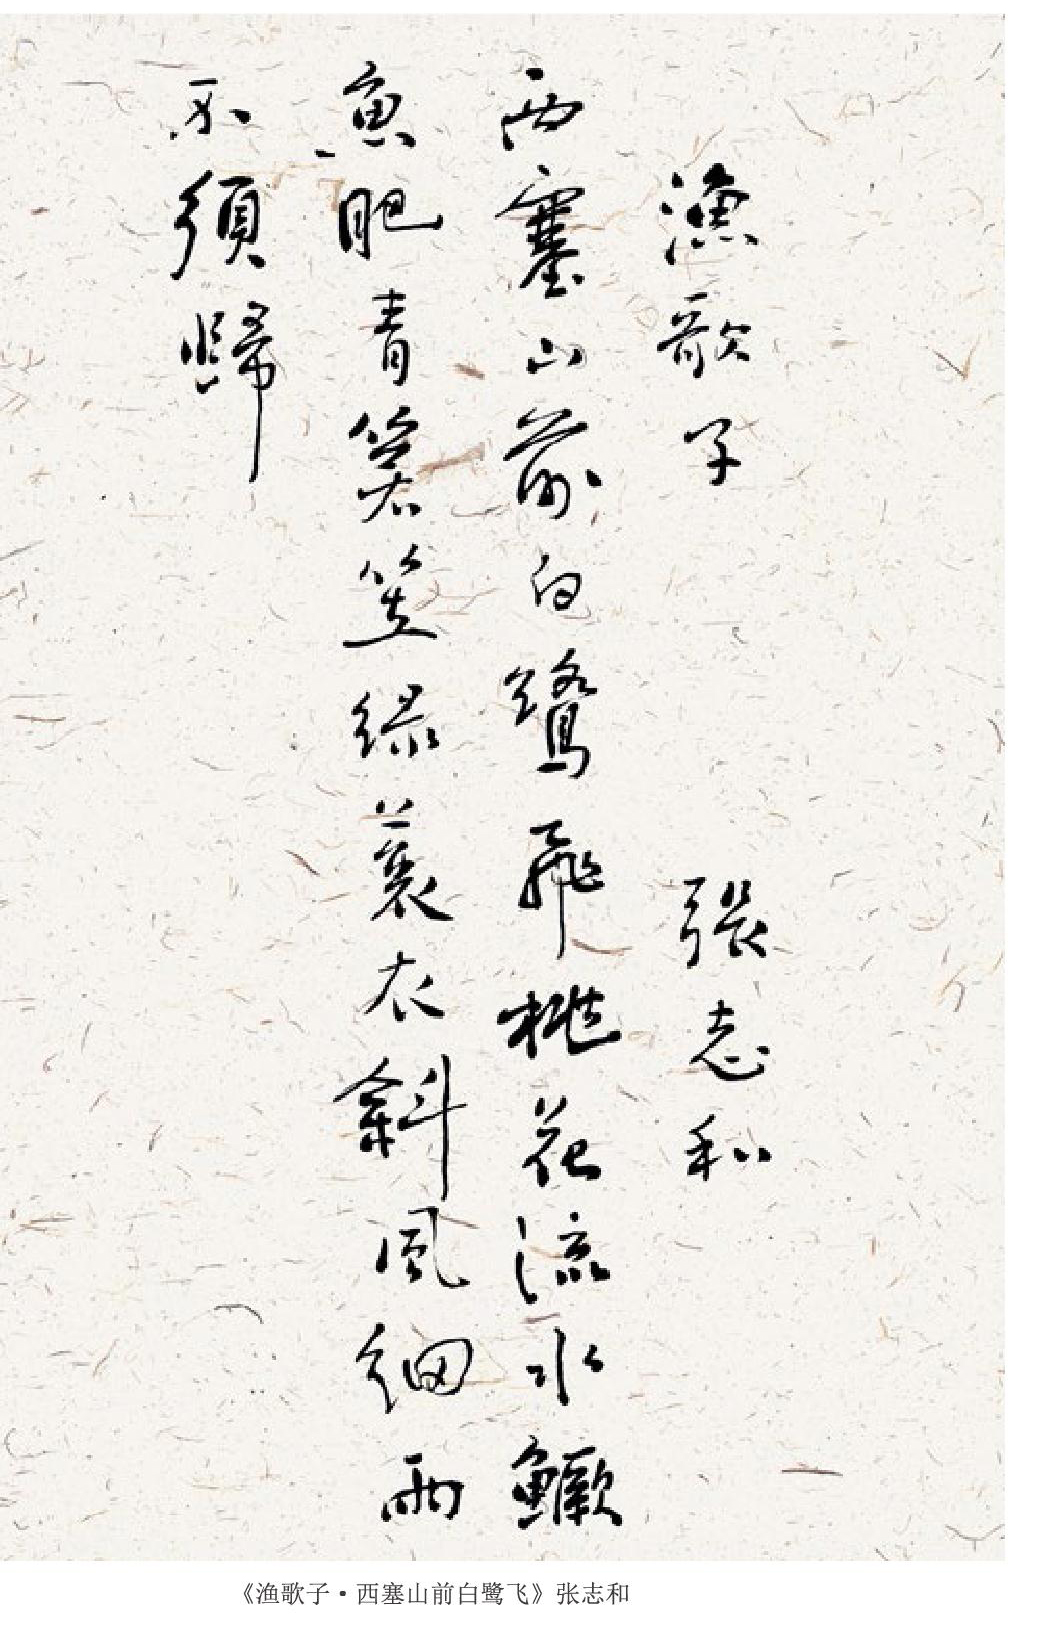 漁歌子 張志和
西塞山前白鷺飛桃花流水鱖
魚肥青箬笠綠蓑衣斜風細雨
不須歸
《渔歌子·西塞山前白鹭飞》张志和